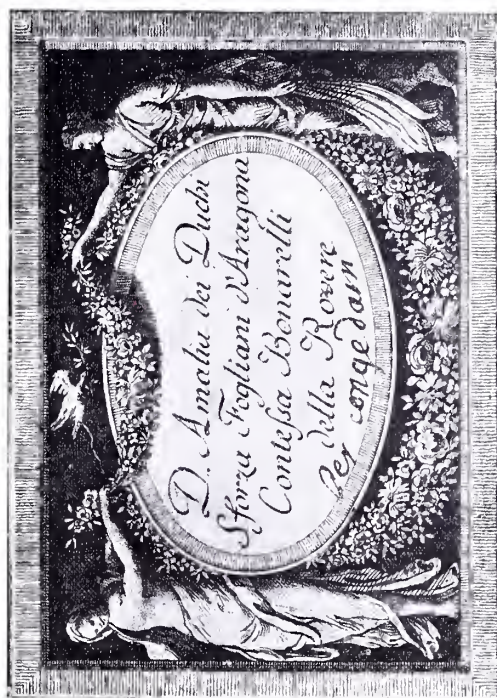 D. Amalia dei Duchi
Sforza Fogliani d'Aragona
Conteſsa Bonarelli
della Rovere
Per congedarsi